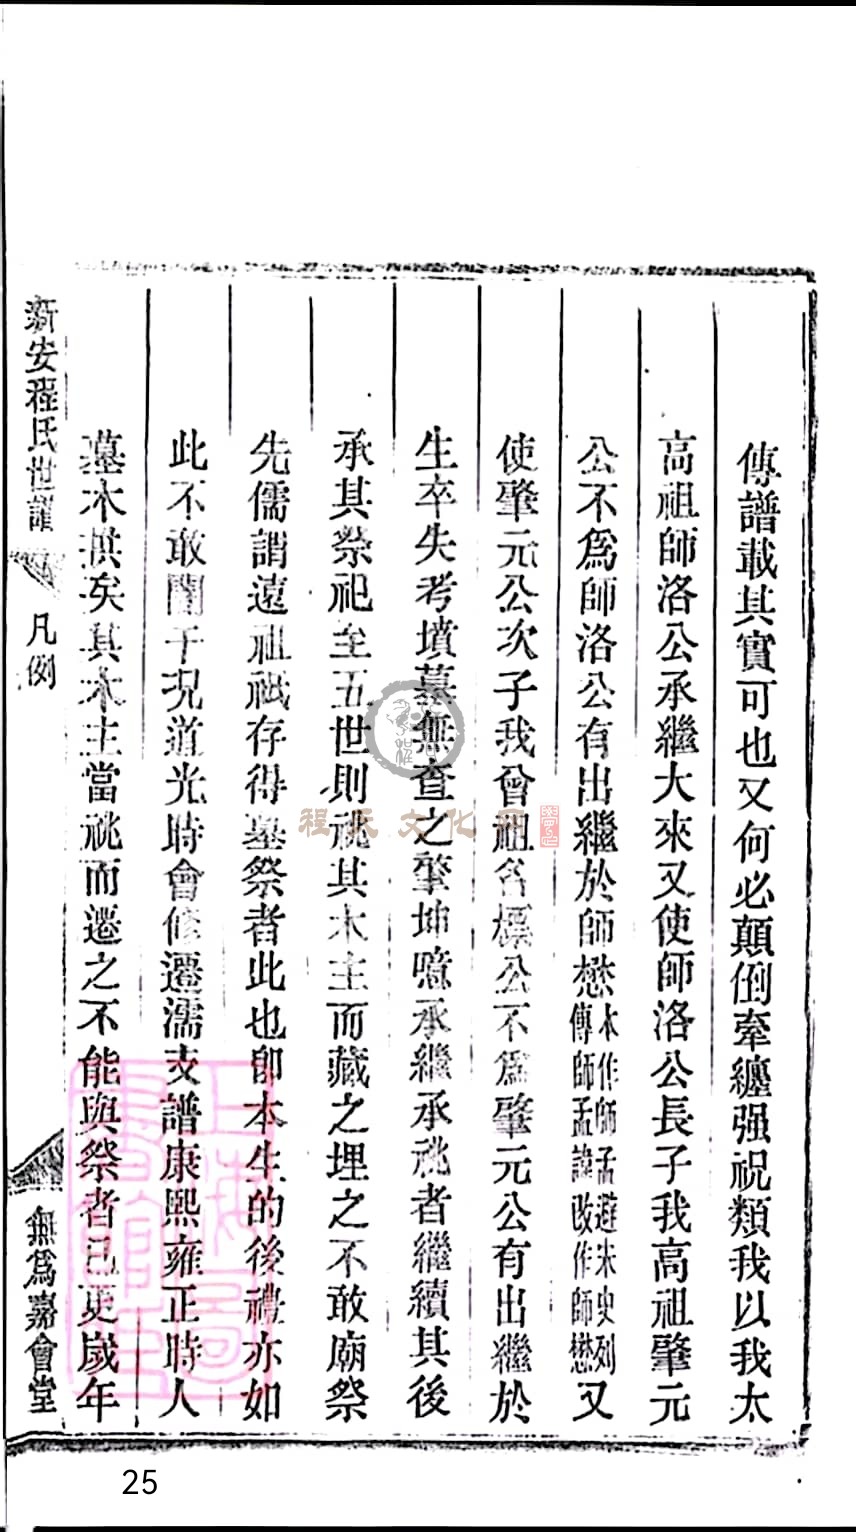 傳譜載其實可也又何必顛倒牽纏强祝類我以我太
高祖師洛公承繼大來又使師洛公長子我高祖肇元
公不爲師洛公有出繼於師懋本作師孟避宋史列傳師孟諱改作師懋又
使肇元公次子我曾祖名標公不爲肇元公有出繼於
生卒失考墳墓無查之肇坤噫承繼承祧者繼續其後
承其祭祀至五世則祧其木主而藏之埋之不敢廟祭
先儒謂遠祖祇存得墓祭者此也卽本生的後禮亦如
此不敢闌干況道光時會修遷濡支譜康熙雍正時人
墓木拱矣其木主當祧而遷之不能與祭者已更歲年
新安程氏世譜
凡例
無爲嘉會堂
程氏文化网
25